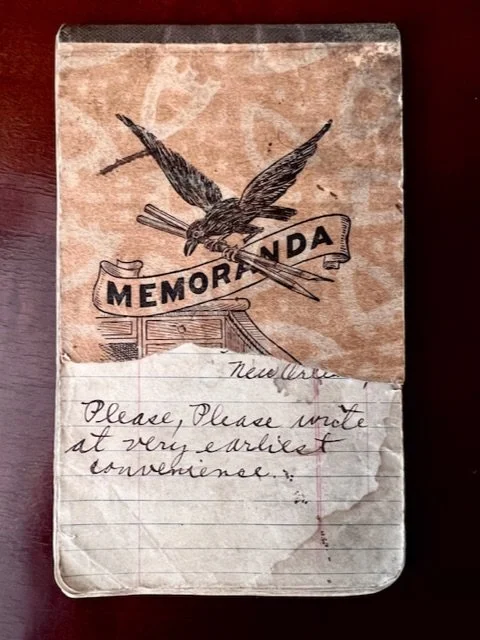 MEMORANDA
New
Please, Please write
at very earliest
convenience.